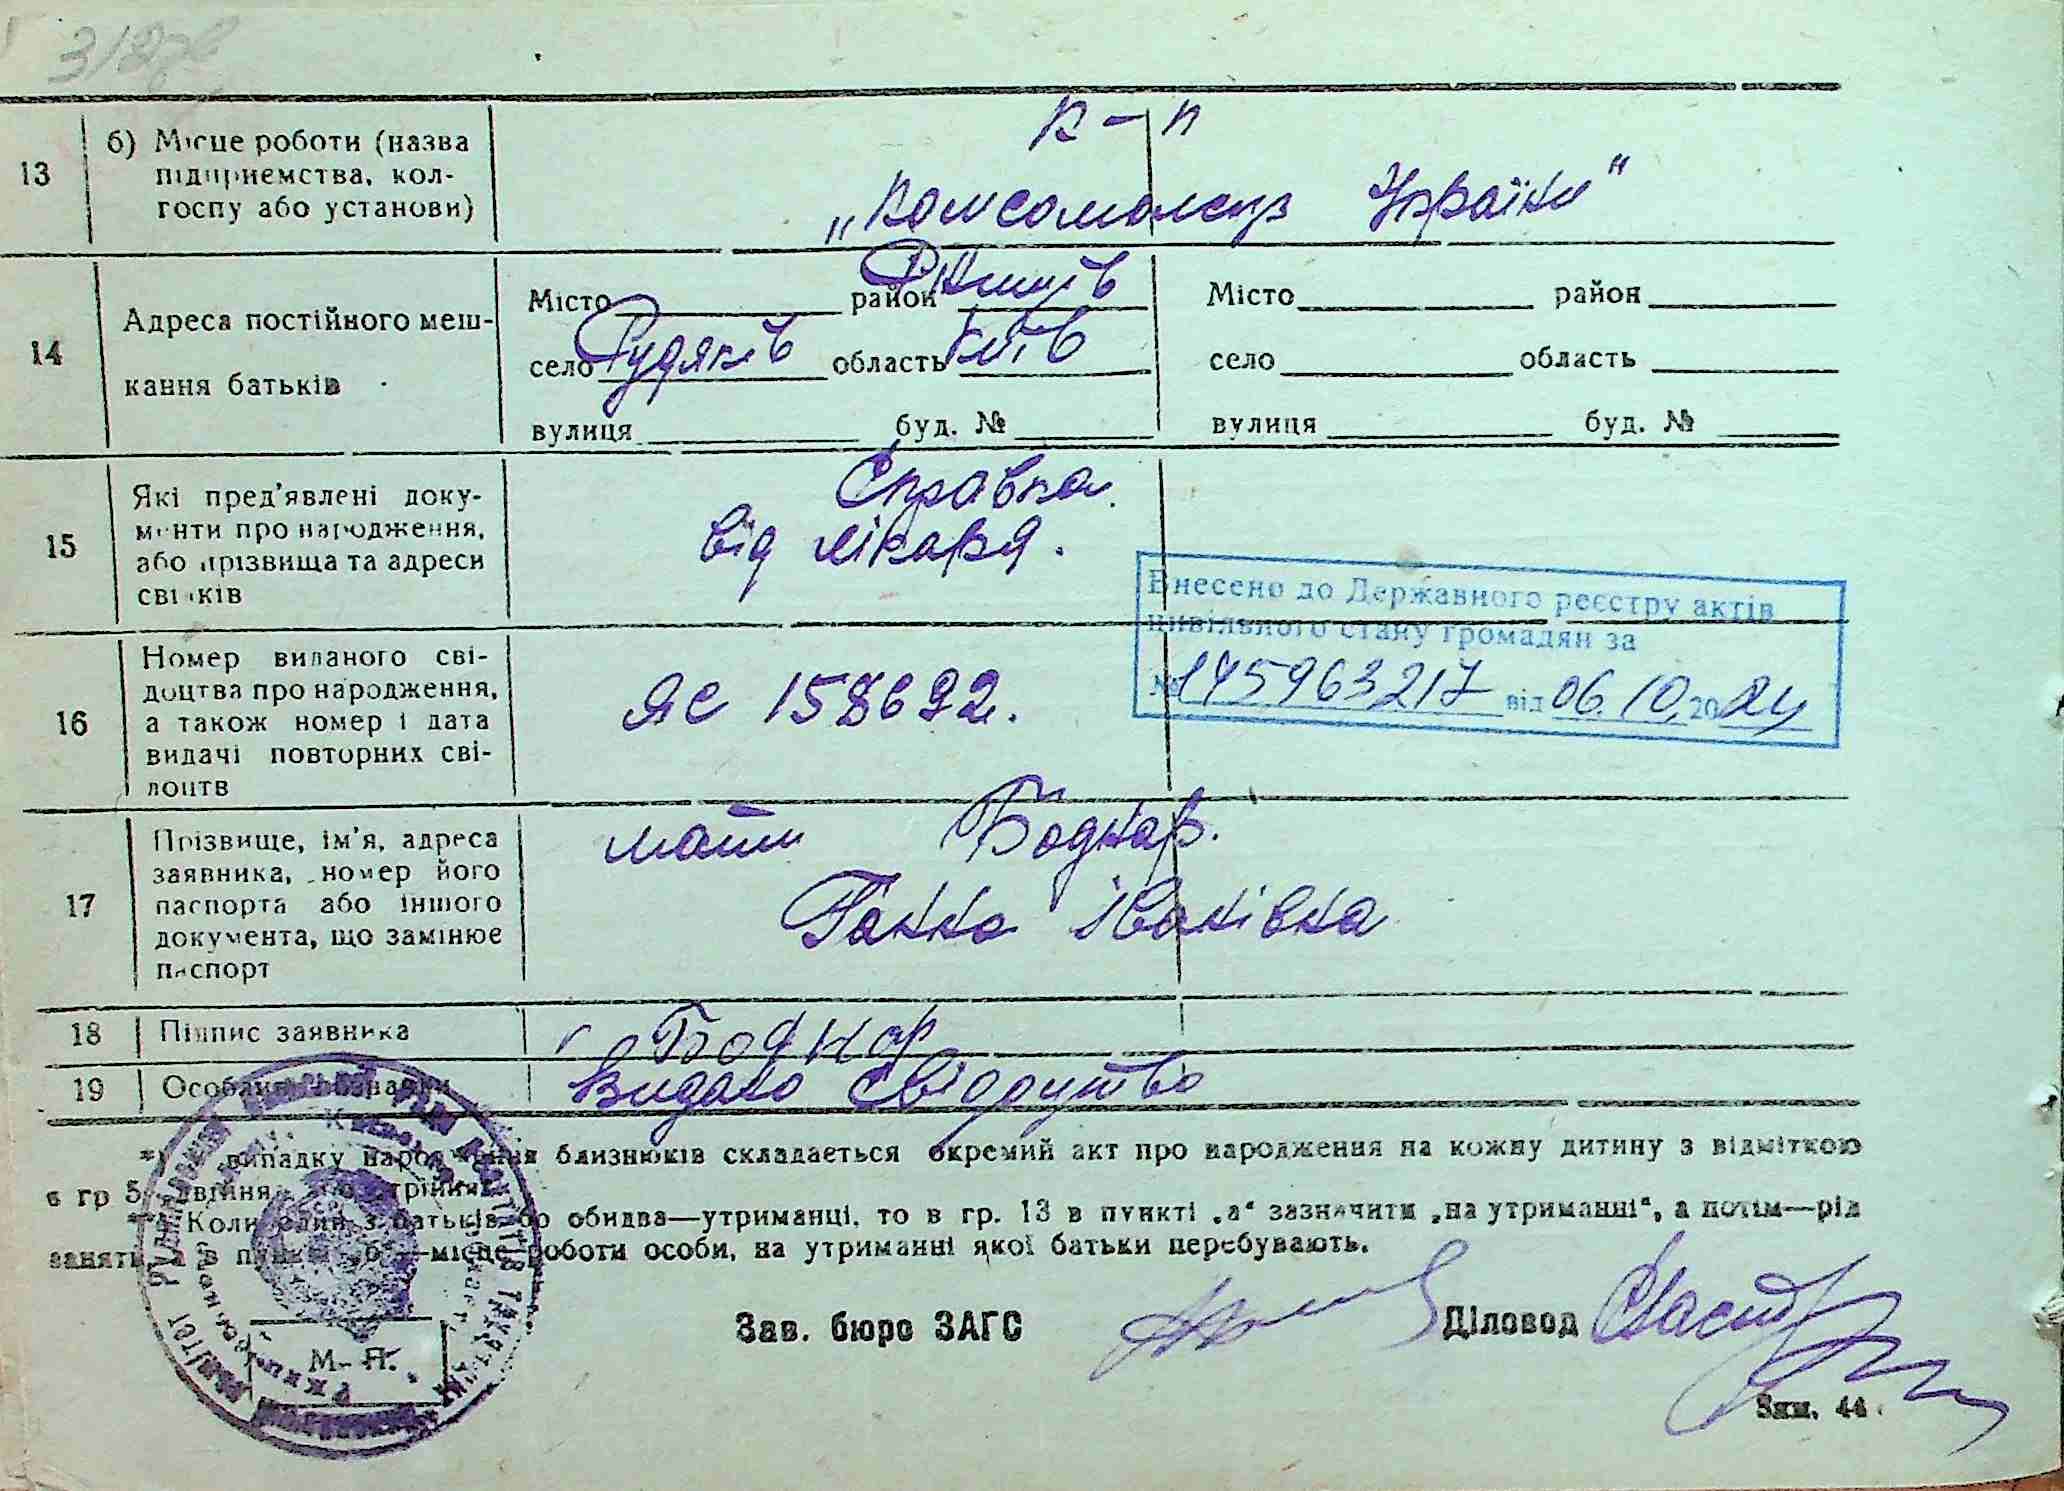 312
к-п
13 б) Місце роботи (назва
підприємства, кол-
госпу або установи)
„Комсомолець України"
14 Адреса постійного меш-
кання батьків
Місто район Ржищів Місто район
село Рудяків область Київ село область
вулиця буд. № вулиця буд. №
15 Які пред'явлені доку-
менти про народження,
або прізвища та адреси
свідків
Справка
від лікаря.
Внесено до Державного реєстру актів
цивільного стану громадян за
№ 145963217 від 06.10.2024
16 Номер виданого сві-
доцтва про народження,
а також номер і дата
видачі повторних сві-
доцтв
ЯС 158692.
17 Прізвище, ім'я, адреса
заявника, номер його
паспорта або іншого
документа, що замінює
паспорт
мати Боднар.
Ганна Іванівна
18 Підпис заявника Боднар
19 Особливі відзнаки Видано свідоцтво
випадку народження близнюків складається окремий акт про народження на кожну дитину з відміткою
в гр 5 двійня, трійня
Коли один з батьків або обидва—утриманці, то в гр. 13 в пункті „а" зазначити „на утриманні", а потім—рід
занять, а в пункті „б"—місце роботи особи, на утриманні якої батьки перебувають.
Зав. бюро ЗАГС Діловод
М. П.
Зам. 44